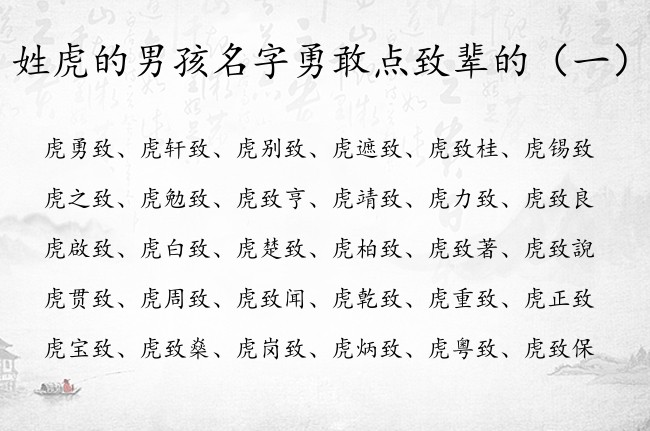 姓虎的男孩名字勇敢点致辈的（一）
虎勇致、虎轩致、虎别致、虎遮致、虎致桂、虎锡致
虎之致、虎勉致、虎致亨、虎靖致、虎力致、虎致良
虎啟致、虎白致、虎楚致、虎柏致、虎致著、虎致說
虎贯致、虎周致、虎致闻、虎乾致、虎重致、虎正致
虎宝致、虎致燊、虎岗致、虎炳致、虎粤致、虎致保